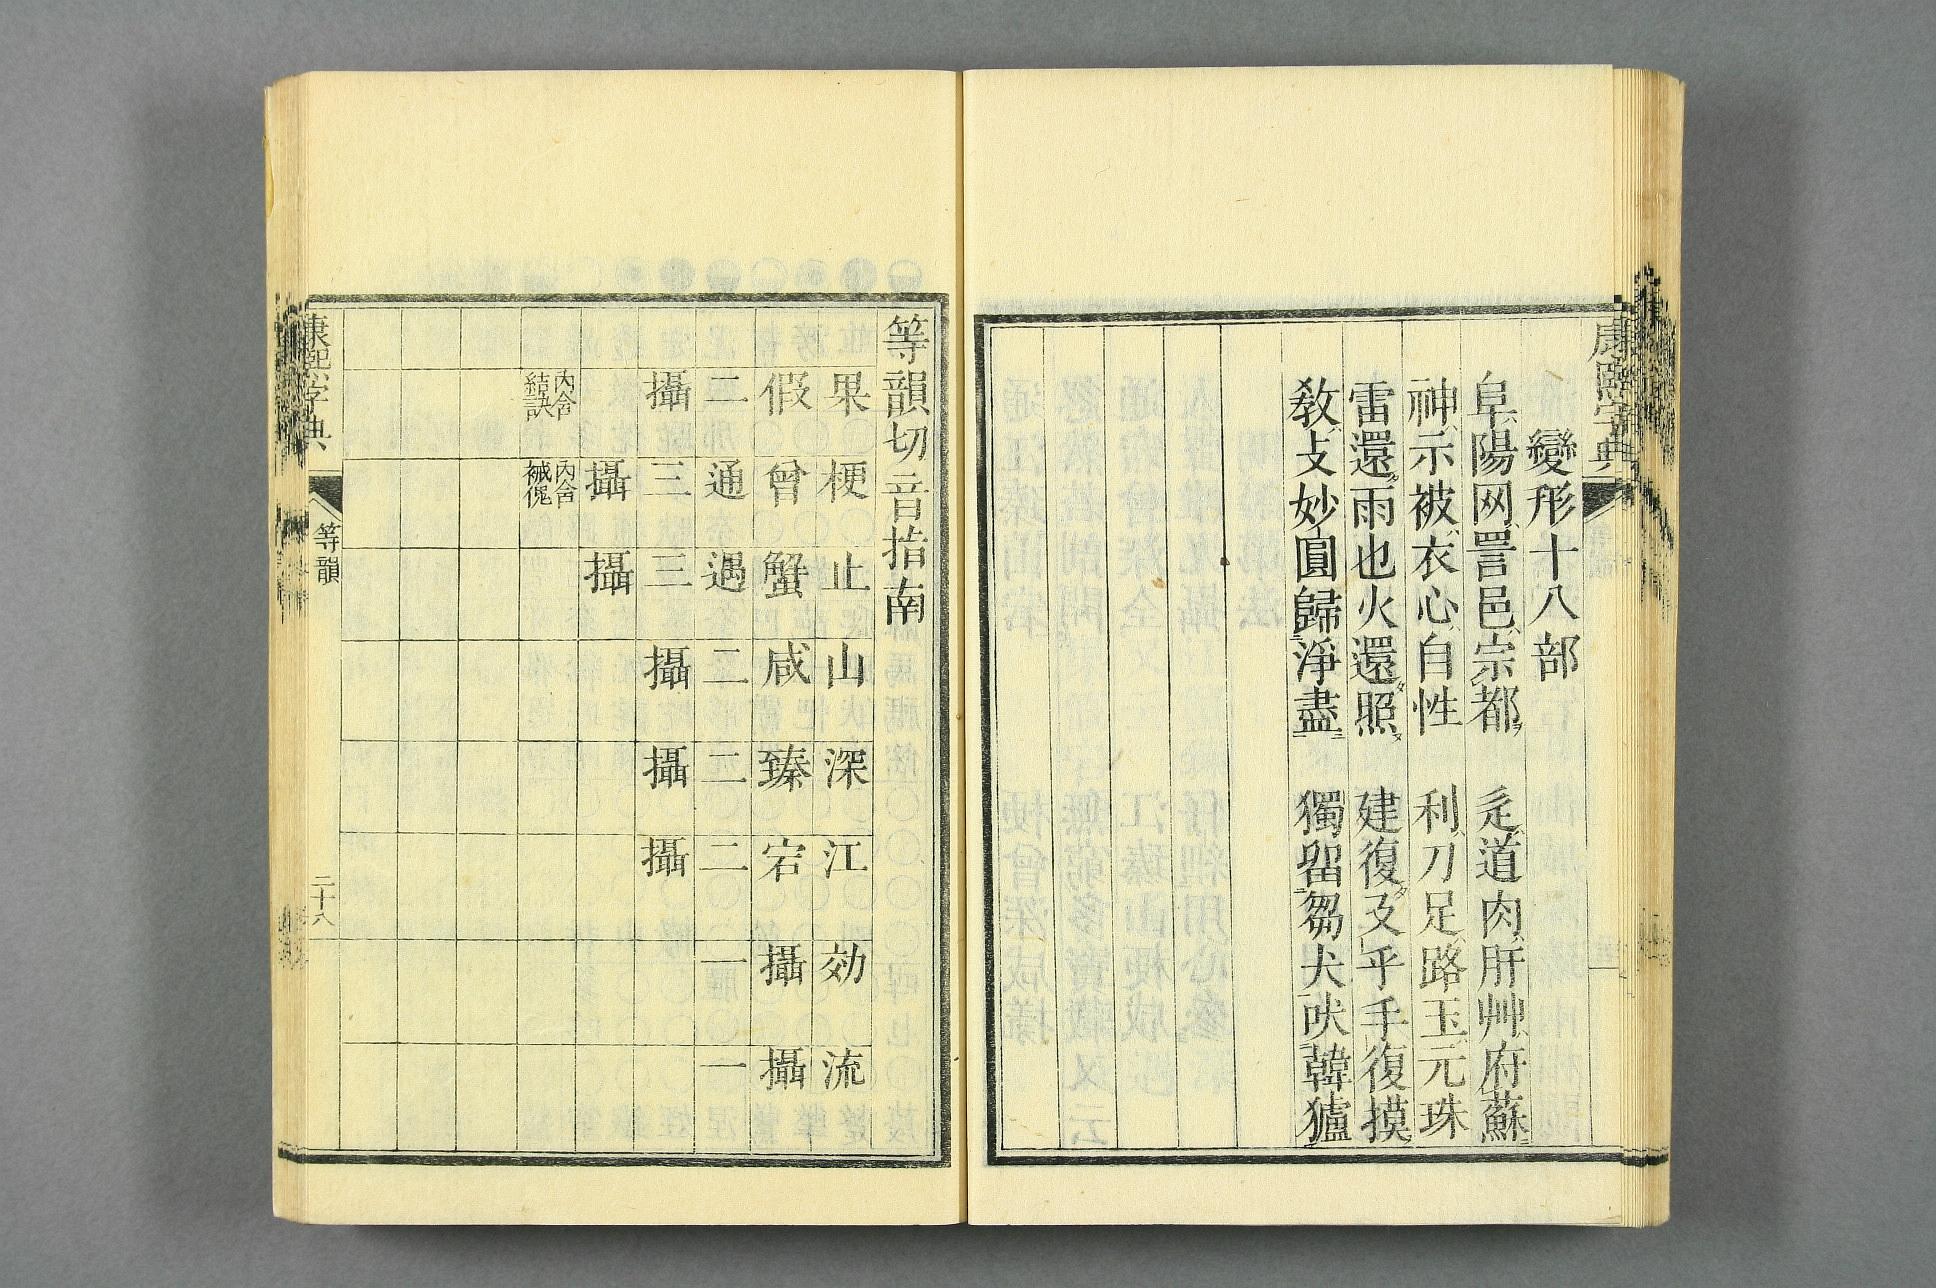 康熙字典
變形十八部
阜阝陽网罒詈邑阝宗都 辵辶道肉月肝艸艹府蘇
神礻示被衤衣心忄自性 利刂刀足𧾷路玉王元珠
雷還雨也火還照 建復廴乎手復摸
敎攵妙圓歸淨盡 獨留芻犬吠韓獹
等韻切音指南
果 梗 止 山 深 江 効 流
假 曾 蟹 咸 臻 宕 攝 攝
二 通 遇 二 二 二 一 一
攝 三 三 攝 攝 攝
攝 攝
內含結訣 內含
康熙字典
等韻
二十八